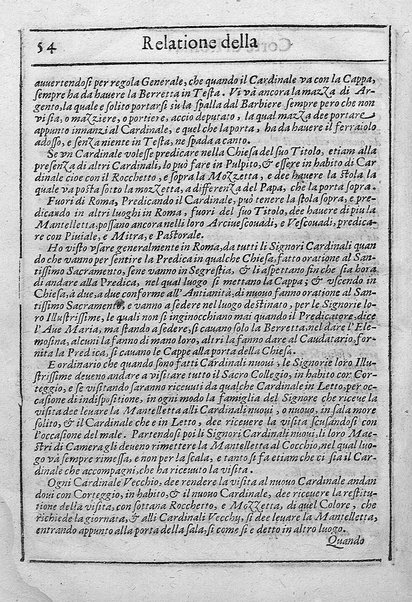 54 Relatione della
auuertendosi per regola Generale, che quando il Cardinale va con la Cappa,
sempre ha da hauere la Berretta in Testa. Vi và ancora la mazza di Ar-
gento, la quale e solito portarsi sù la spalla dal Barbiere sempre però che non
vi sia, o mazziere, o portiere, accio deputato, la qual mazza dee portare
appunto innanzi al Cardinale, e quel che la porta, ha da hauere il ferraiolo
adosso, e senza niente in Testa, ne spada a canto.
Se vn Cardinale volesse predicare nella Chiesa del suo Titolo, etiam alla
presenza di altri Cardinali, lo può fare in Pulpito, & essere in habito di Car
dinale cioe con il Rocchetto, e sopra la Mozzetta, e dee hauere la stola, la
quale va posta sotto la mozzetta, a differenza del Papa, che la porta sopra.
Fuori di Roma, Predicando il Cardinale, può tenere la stola sopra, e pre-
dicando in altri luoghi in Roma, fuori del suo Titolo, dee hauere di piu la
Mantelletta, possono ancora nelli loro Arciuescouadi, e Vescouadi, predica-
re con Piuiale, e Mitra, e Pastorale.
Ho visto vsare generalmente in Roma, da tutti li Signori Cardinali quan
do che vanno per sentire la Predica in qualche Chiesa, fatto oratione al San-
tissimo Sacramento, se ne vanno in Segrestia, & li aspettano finche sia hora
di andare alla Predica, nel qual luogo si mettano la Cappa; & vscendo in
Chiesa, à due, a due conforme all'Antianità, di nuouo fanno oratione al San-
tissimo Sacramento, e vanno a sedere nel luogo destinato, per le Signorie lo-
ro Illustrissime, le quali non si inginocchiano mai quando il Predicatore, dice
l'Aue Maria, ma stando a sedere, si cauano solo la Berretta, nel dare l'Ele-
mosina, alcuni la fanno di mano loro, altri la fanno dare al Caudatario, for-
nita la Predica, si cauano le Cappe alla porta della Chiesa.
E ordinario che quando sono fatti Cardinali nuoui, le Signorie loro Illu-
strissime deueno andare a visitare tutto il Sacro Collegio, in habito con Cor-
teggio, e se visitando saranno riceuuti da qualche Cardinale in Letto, per oc-
casione di indispositione, in ogni modo la famiglia del Signore che riceue la
visita dee leuare la Mantelletta alli Cardinali nuoui, o nuouo, in sala more
solito, & il Cardinale che e in Letto, dee riceuere la visita scusandosi con
l'occasione del male. Partendosi poi li Signori Cardinali nuoui, li loro Mae-
stri di Camera gli deueno rimettere la Mantelletta al Cocchio, nel qual luo-
go va sempre rimessa, e non per la scala, e tanto si fa etiam che ci sia il Car-
dinale che accompagni, che ha riceuuto la visita.
Ogni Cardinale Vecchio, dee rendere la visita al nuouo Cardinale andan
doui con Corteggio, in habito, & il nuouo Cardinale, dee riceuere la restitu-
tione della visita, con sottana Rocchetto, e Mozzetta, di quel Colore, che
richiede la giornata, & alli Cardinali Vecchy, si dee leuare la Mantelletta,
entrando appunto alla porta della sala, si come si e detto in altro luogo.
Quando